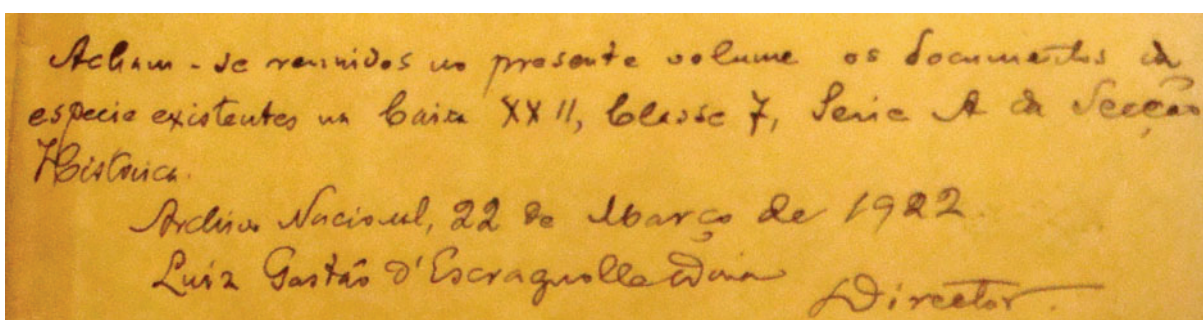 Acham-se reunidos no presente volume os documentos da
especie existentes na Caixa XXII, Classe 7, Serie A da Secção
Historica.
Archivo Nacional, 22 de Março de 1922
Luiz Gastão d'Escragnolle Doria
Director.